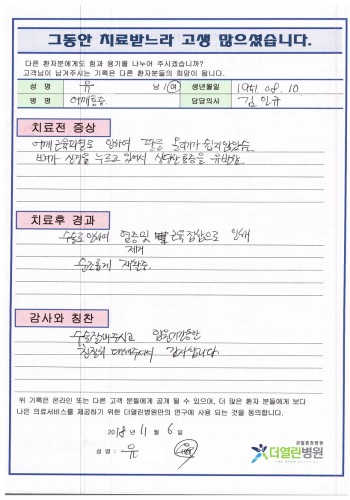 그동안 치료받느라 고생 많으셨습니다.
다른 환자분에게도 힘과 용기를 나누어 주시겠습니까?
고객님이 남겨주시는 기록은 다른 환자분들의 희망이 됩니다.
성 명 유 남 / 여 생년월일 1951. 08. 10
병 명 어깨통증 담당의사 김인규
치료전 증상
어깨 근육파열로 인하여 팔을 올리기가 쉽지 않았음.
뼈가 신경을 누르고 있어서 상당한 통증을 유발함.
치료후 경과
수술로 인하여 염증 및 뼈 근육접합으로 인해
제거
순조롭게 재활중.
감사와 칭찬
수술 잘해주시고 입원기간동안
친절히 대해주셔서 감사합니다.
위 기록은 온라인 또는 다른 고객 분들에게 공개 될 수 있으며, 더 많은 환자 분들에게 보다
나은 의료서비스를 제공하기 위한 더열린병원만의 연구에 사용 되는 것을 동의합니다.
2018 년 11 월 6 일
성 명 : 유
관절중점병원
더열린병원